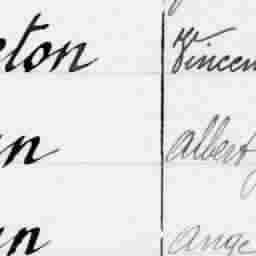 eton Vincen
n Albert
n Ange